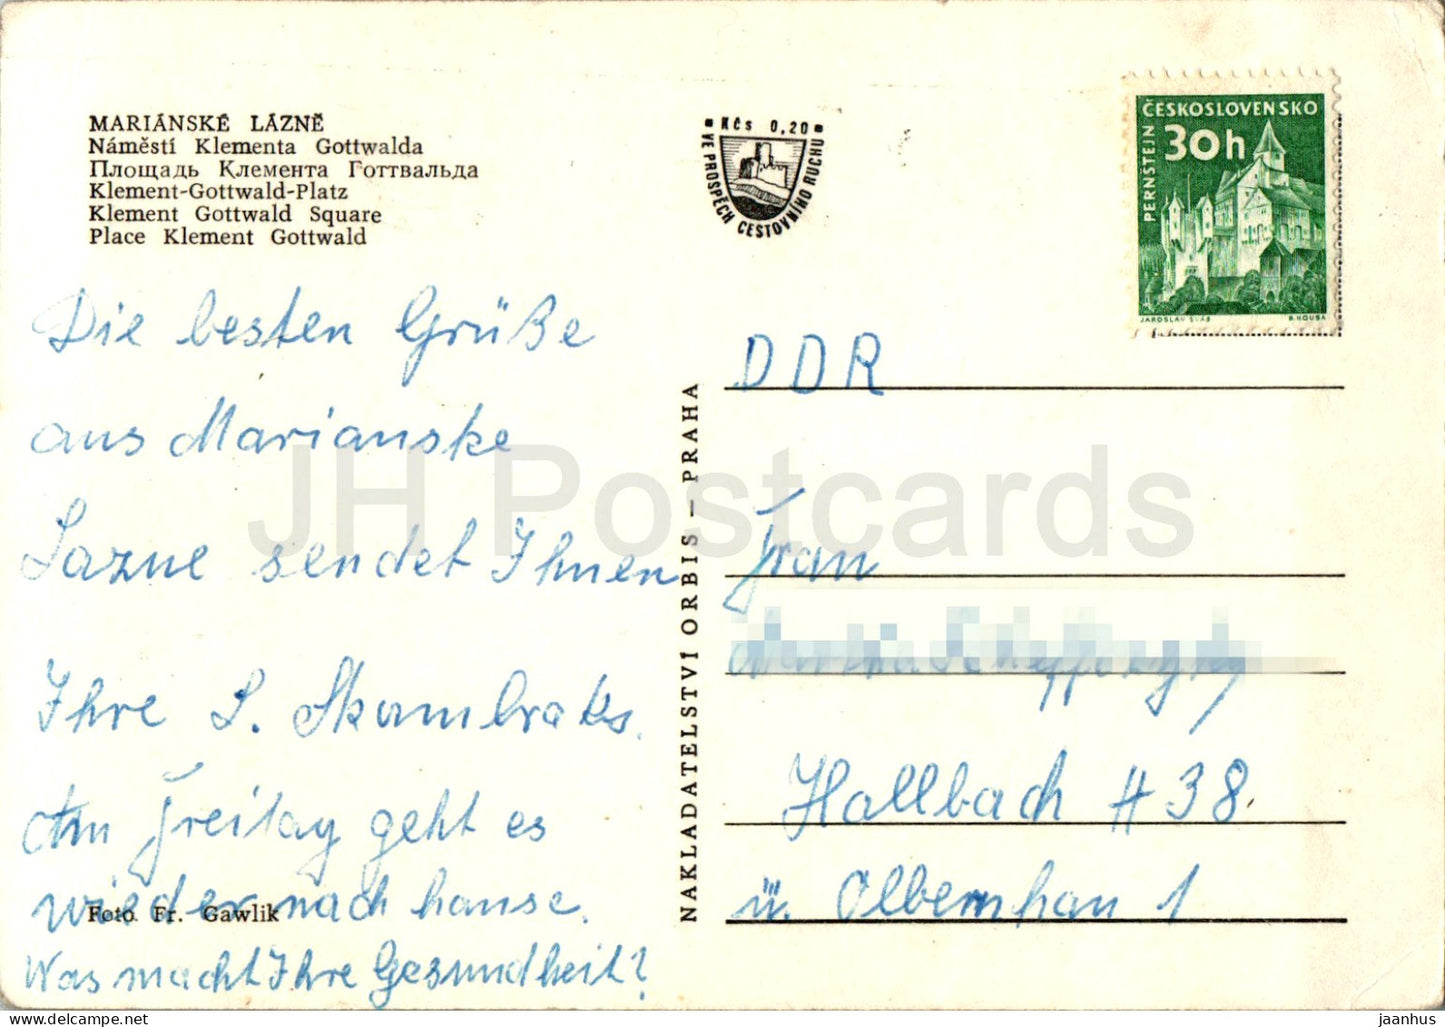 MARIÁNSKÉ LÁZNĚ
Náměstí Klementa Gottwalda
Площадь Клемента Готтвальда
Klement-Gottwald-Platz
Klement Gottwald Square
Place Klement Gottwald
Kčs 0,20
VE PROSPĚCH CESTOVNÍHO RUCHU
ČESKOSLOVENSKO
30h
PERNŠTEJN
JAROSLAV ŠVÁB
B. HOUSA
Die besten Grüße
aus Marianske
Lazne sendet Ihnen
Ihre S. Skambraks.
Am Freitag geht es
wieder nach hause.
Foto Fr. Gawlik
Was macht Ihre Gesundheit?
NAKLADATELSTVÍ ORBIS — PRAHA
DDR
Frau
Hallbach # 38
ü. Olbernhau 1
JH Postcards
www.delcampe.net
jaanhus